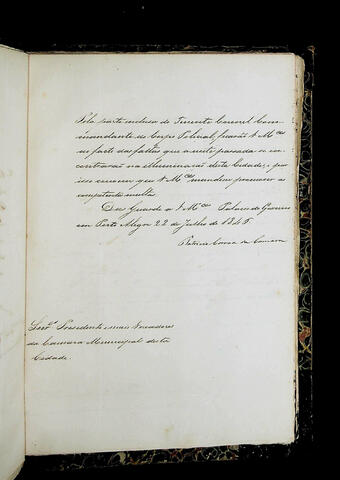 Pela parte inclusa do Tenente Coronel Com-
mandante do Corpo Policial, ficarão V Mces
ao facto das faltas que a noite passada se en-
contrarão na illuminação desta Cidade, e por
isso cumpre que V Mces mandem promover as
competentes multas.
Deos Guarde a V Mces Palacio do Governo
em Porto Alegre 22 de Julho de 1846.
Patricio Correa da Camara
Snres Presidente e mais Vereadores
da Camara Municipal desta
Cidade.